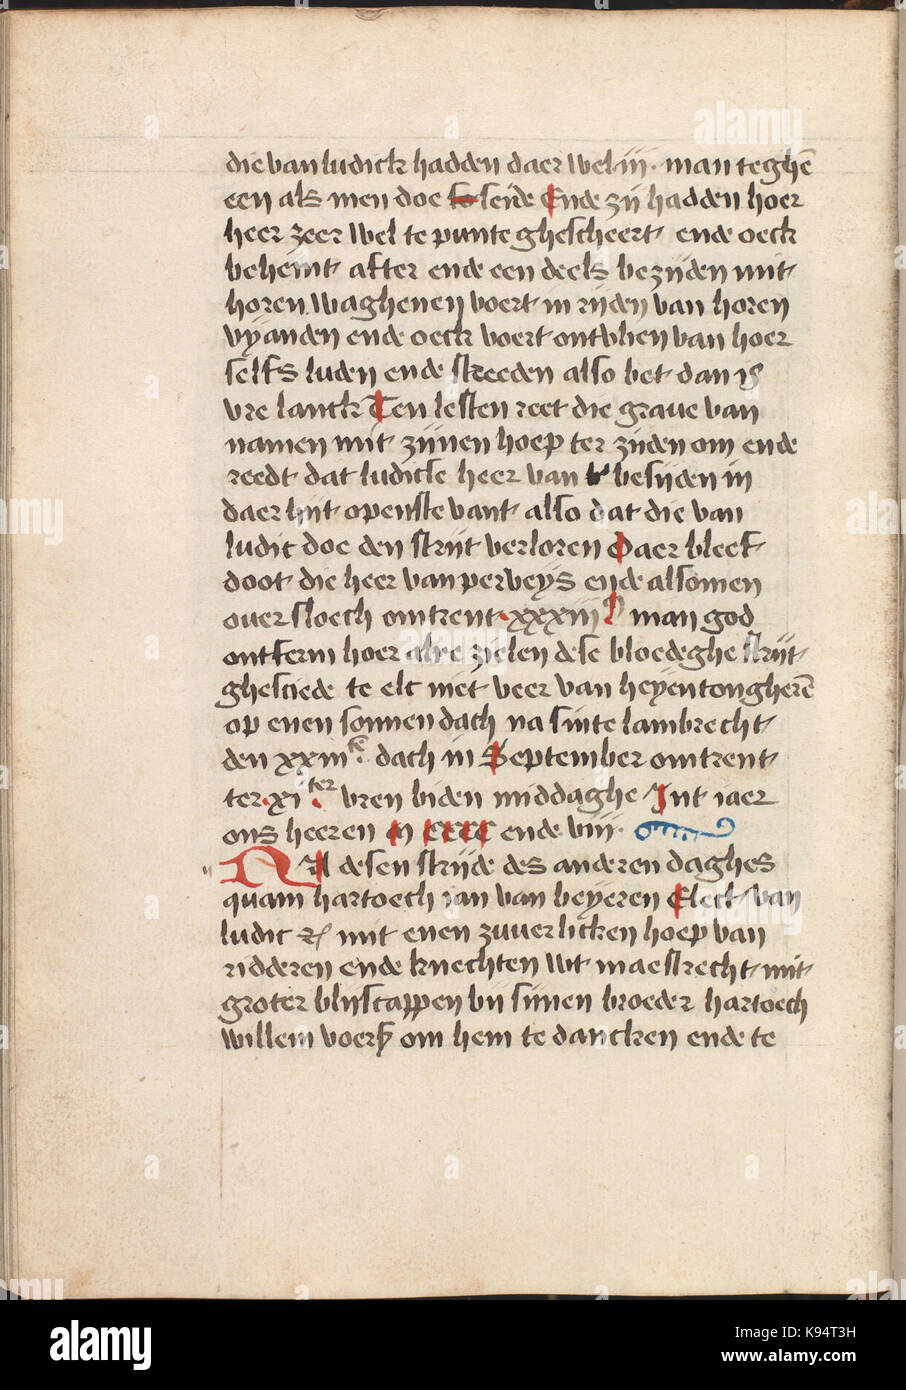 die van ludick hadden daer wel iij. man teghē
een als men doe seide Ende zij hadden hoer
heer zeer wel te punte ghescheert ende oeck
beheint after ende een deels bezijden mit
horen waghenen voert in rijden van horen
vyanden ende oeck voert ontvlien van hoer
selfs luden ende streeden also bet dan is
vre lanck Ten lesten reet die graue van
namen mit zijnen hoep ter zijden om ende
reedt dat ludicse heer van besijden in
daer hijt openste vant also dat die van
ludic doe den strijt verloren Daer bleef
doot die heer van perveys ende alsomen
ouersloech omtrent xxxiii man god
ontferm hoer alre zielen dese bloedeghe strijt
ghesciede te elc niet veer van heyen tongherē
op enen sonnendach na sinte lambrecht
den xxiii dach in September omtrent
ter xi ter vren biden middaghe Int iaer
ons heeren M CCCC ende viii.
Na desen strijde des anderen daghes
quam hartoech ian van beyeren Elect van
ludic mit enen zuuerlicken hoep van
ridderen ende knechten wt maestrecht mit
groter blijscappen bij sijnen broeder hartoech
willem voers om hem te dancken ende te
alamy
Image ID: K94T3H
www.alamy.com